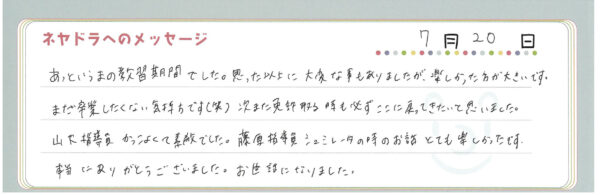 ネヤドラへのメッセージ
7月20日
あっというまの教習期間でした。思った以上に大変な事もありましたが、楽しかった方が大きいです。
まだ卒業したくない気持ちです(笑) 次また免許取る時も必ずここに戻ってきたいと思いました。
山大指導員 かっこよくて素敵でした。藤原指導員 シュミレータの時のお話 とても楽しかったです。
本当にありがとうございました。お世話になりました。